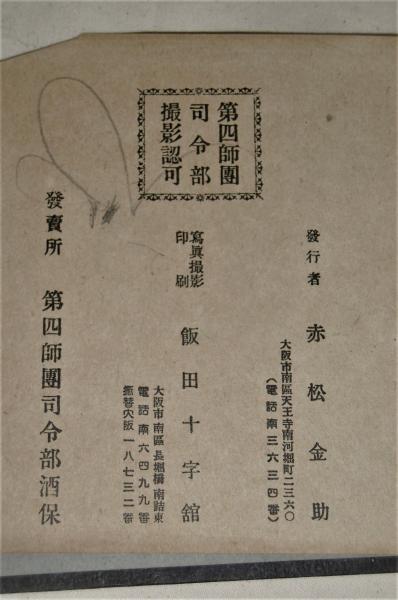 第四師團
司令部
撮影認可
發行者 赤松金助
大阪市南區天王寺南河堀町二三六〇
(電話南三六三四番)
寫眞撮影
印刷
飯田十字舘
大阪市南區長堀橋南詰東
電話南六四九九番
振替大阪一八七三二番
發賣所 第四師團司令部酒保